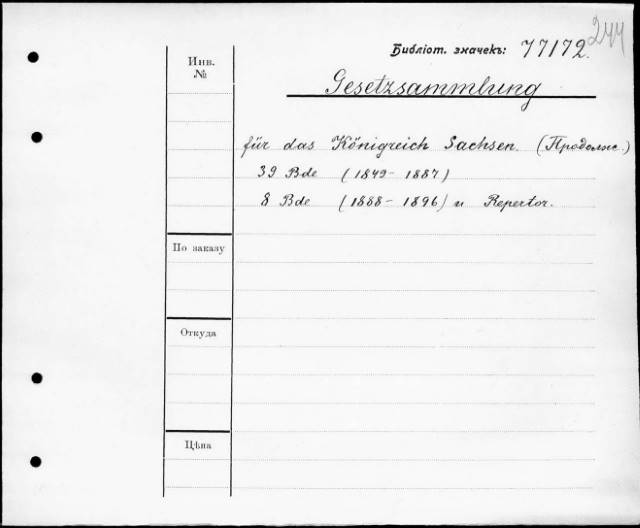 244
Библіот. значекъ: 77172.
Инв. №
Gesetzsammlung
für das Königreich Sachsen. (Продолж.)
39 Bde (1849-1887)
8 Bde (1888-1896) и Repertor.
По заказу
Откуда
Цѣна